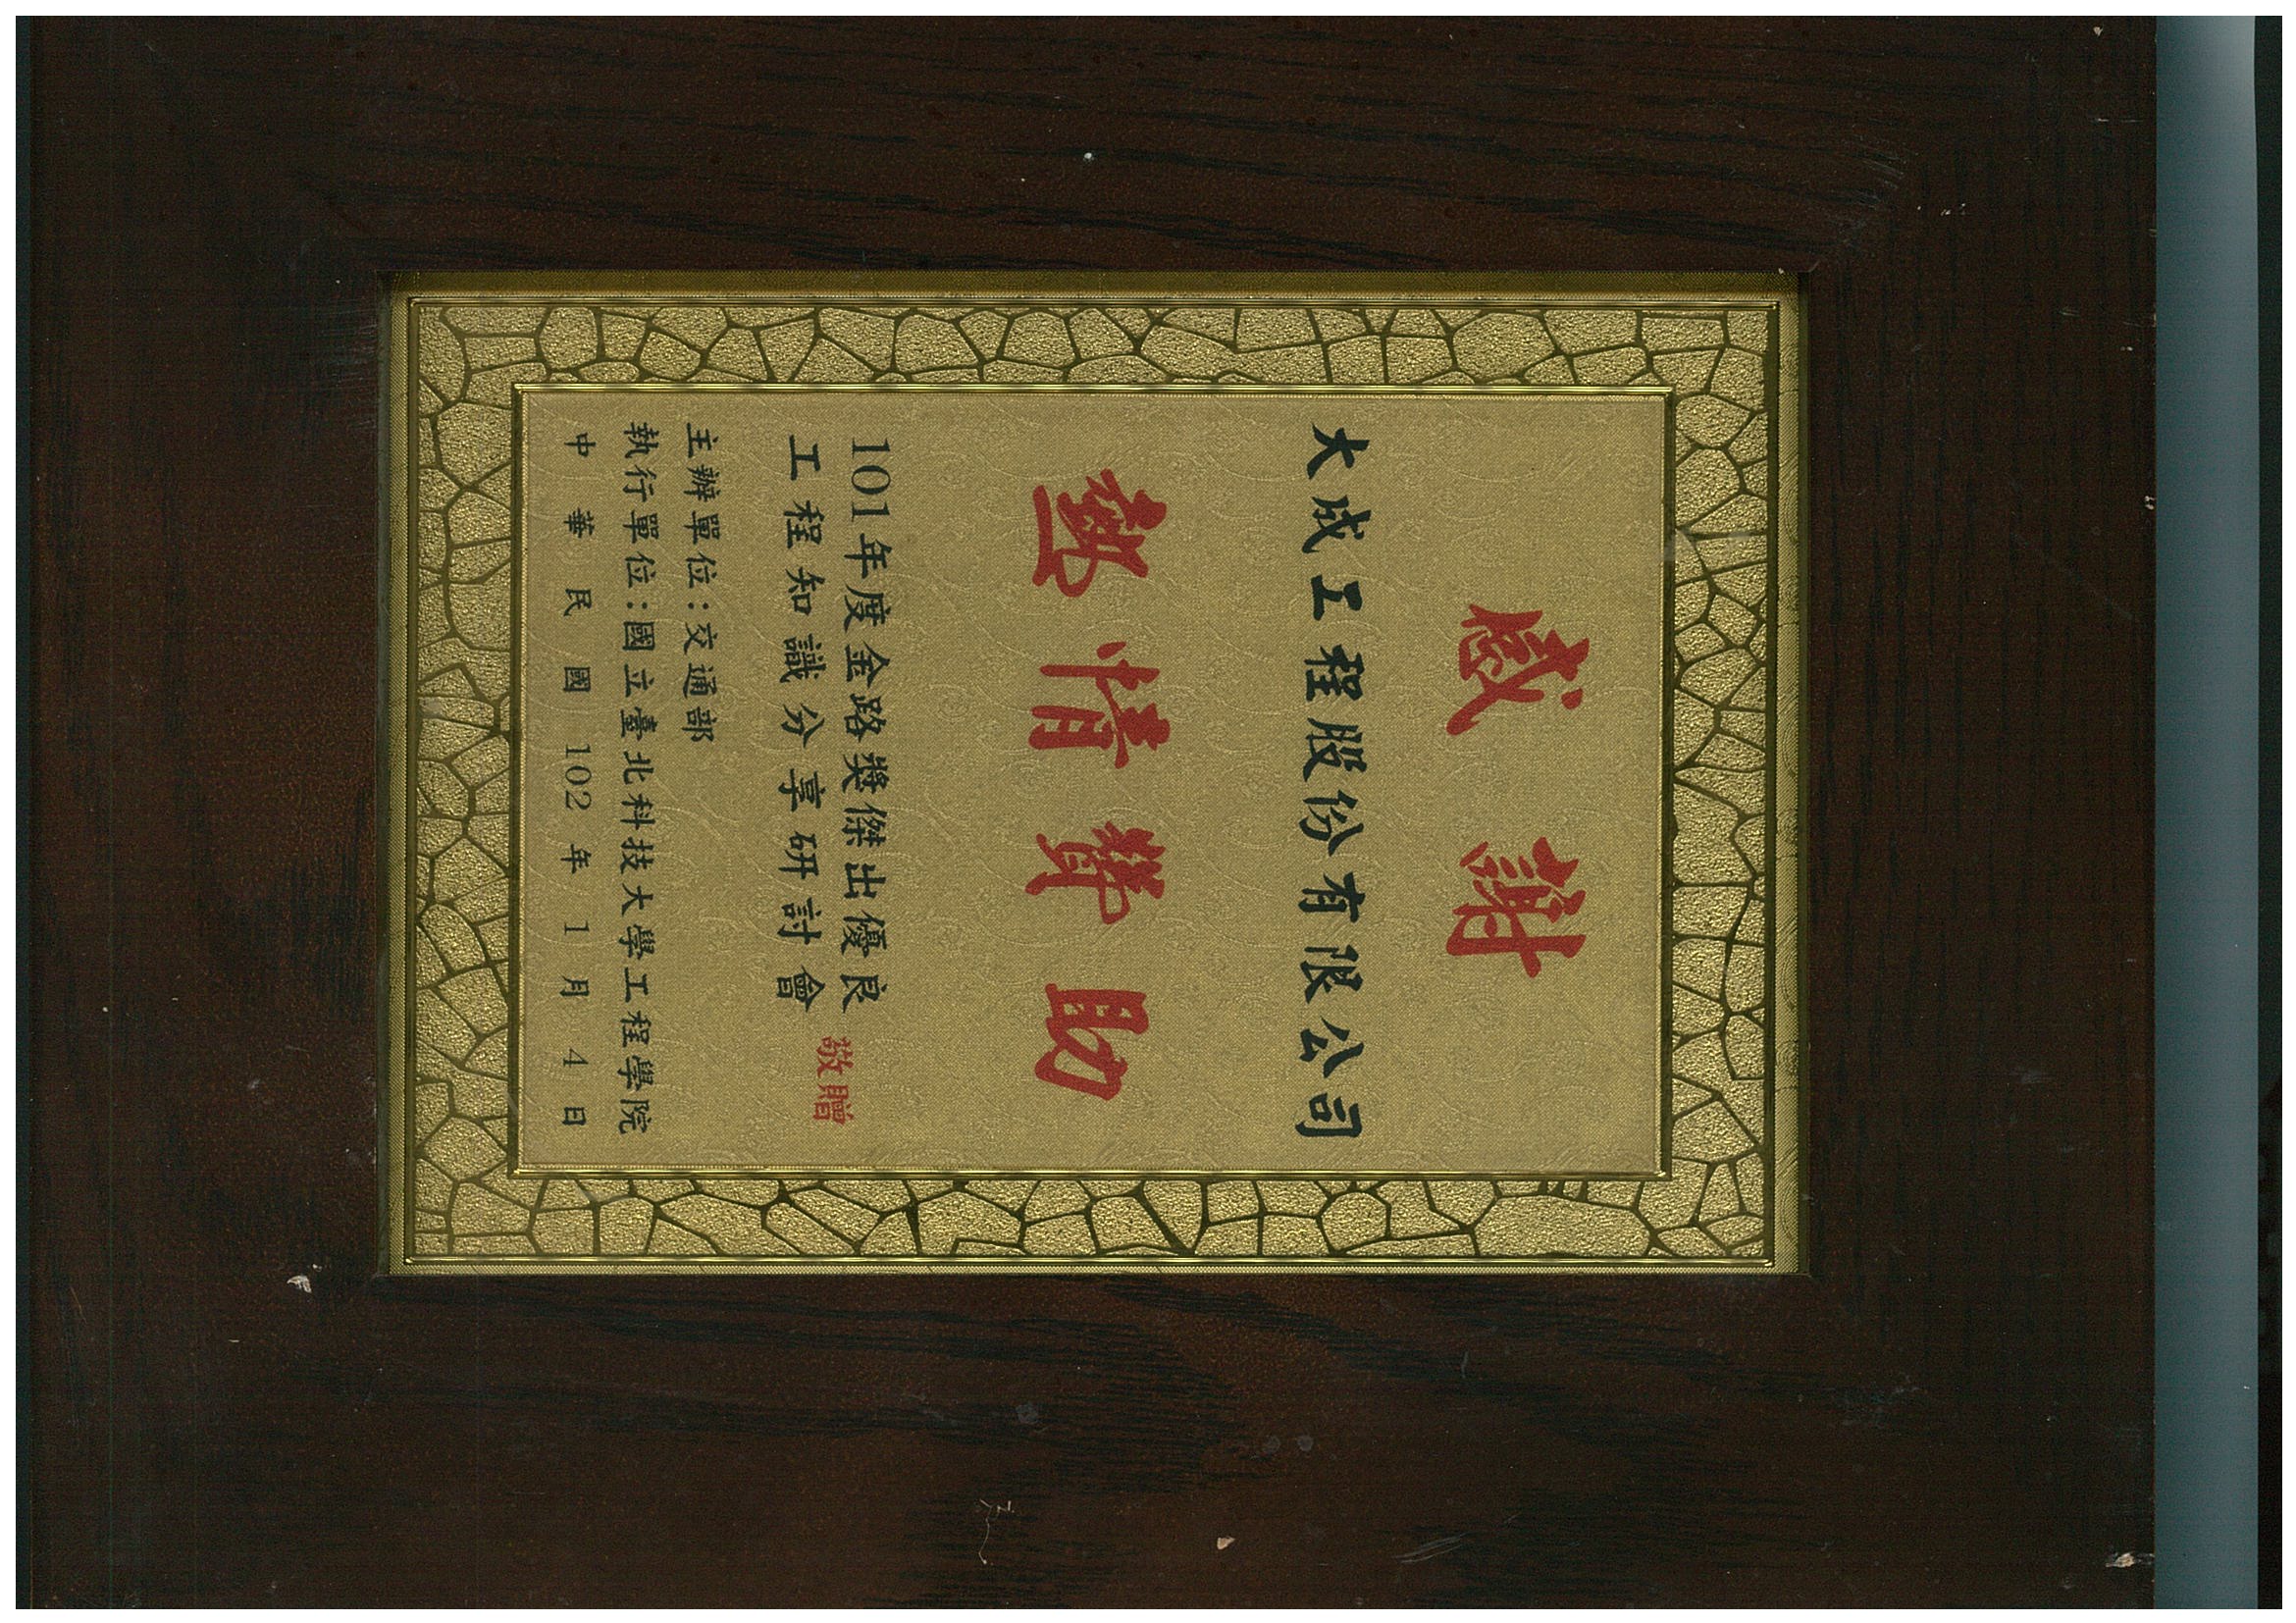 感謝
大成工程股份有限公司
熱情贊助
101年度金路獎傑出優良
工程知識分享研討會
敬贈
主辦單位:交通部
執行單位:國立臺北科技大學工程學院
中華民國102年1月4日